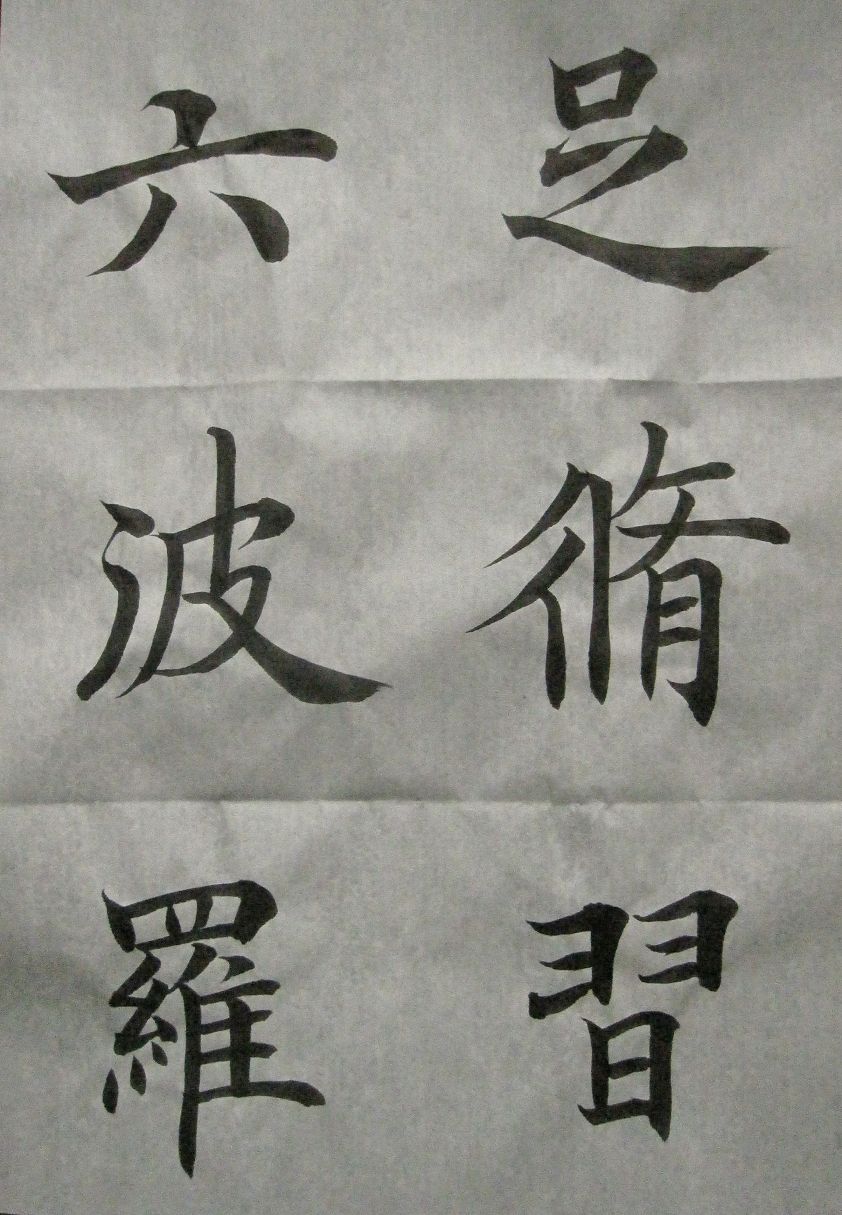 足脩習
六波羅